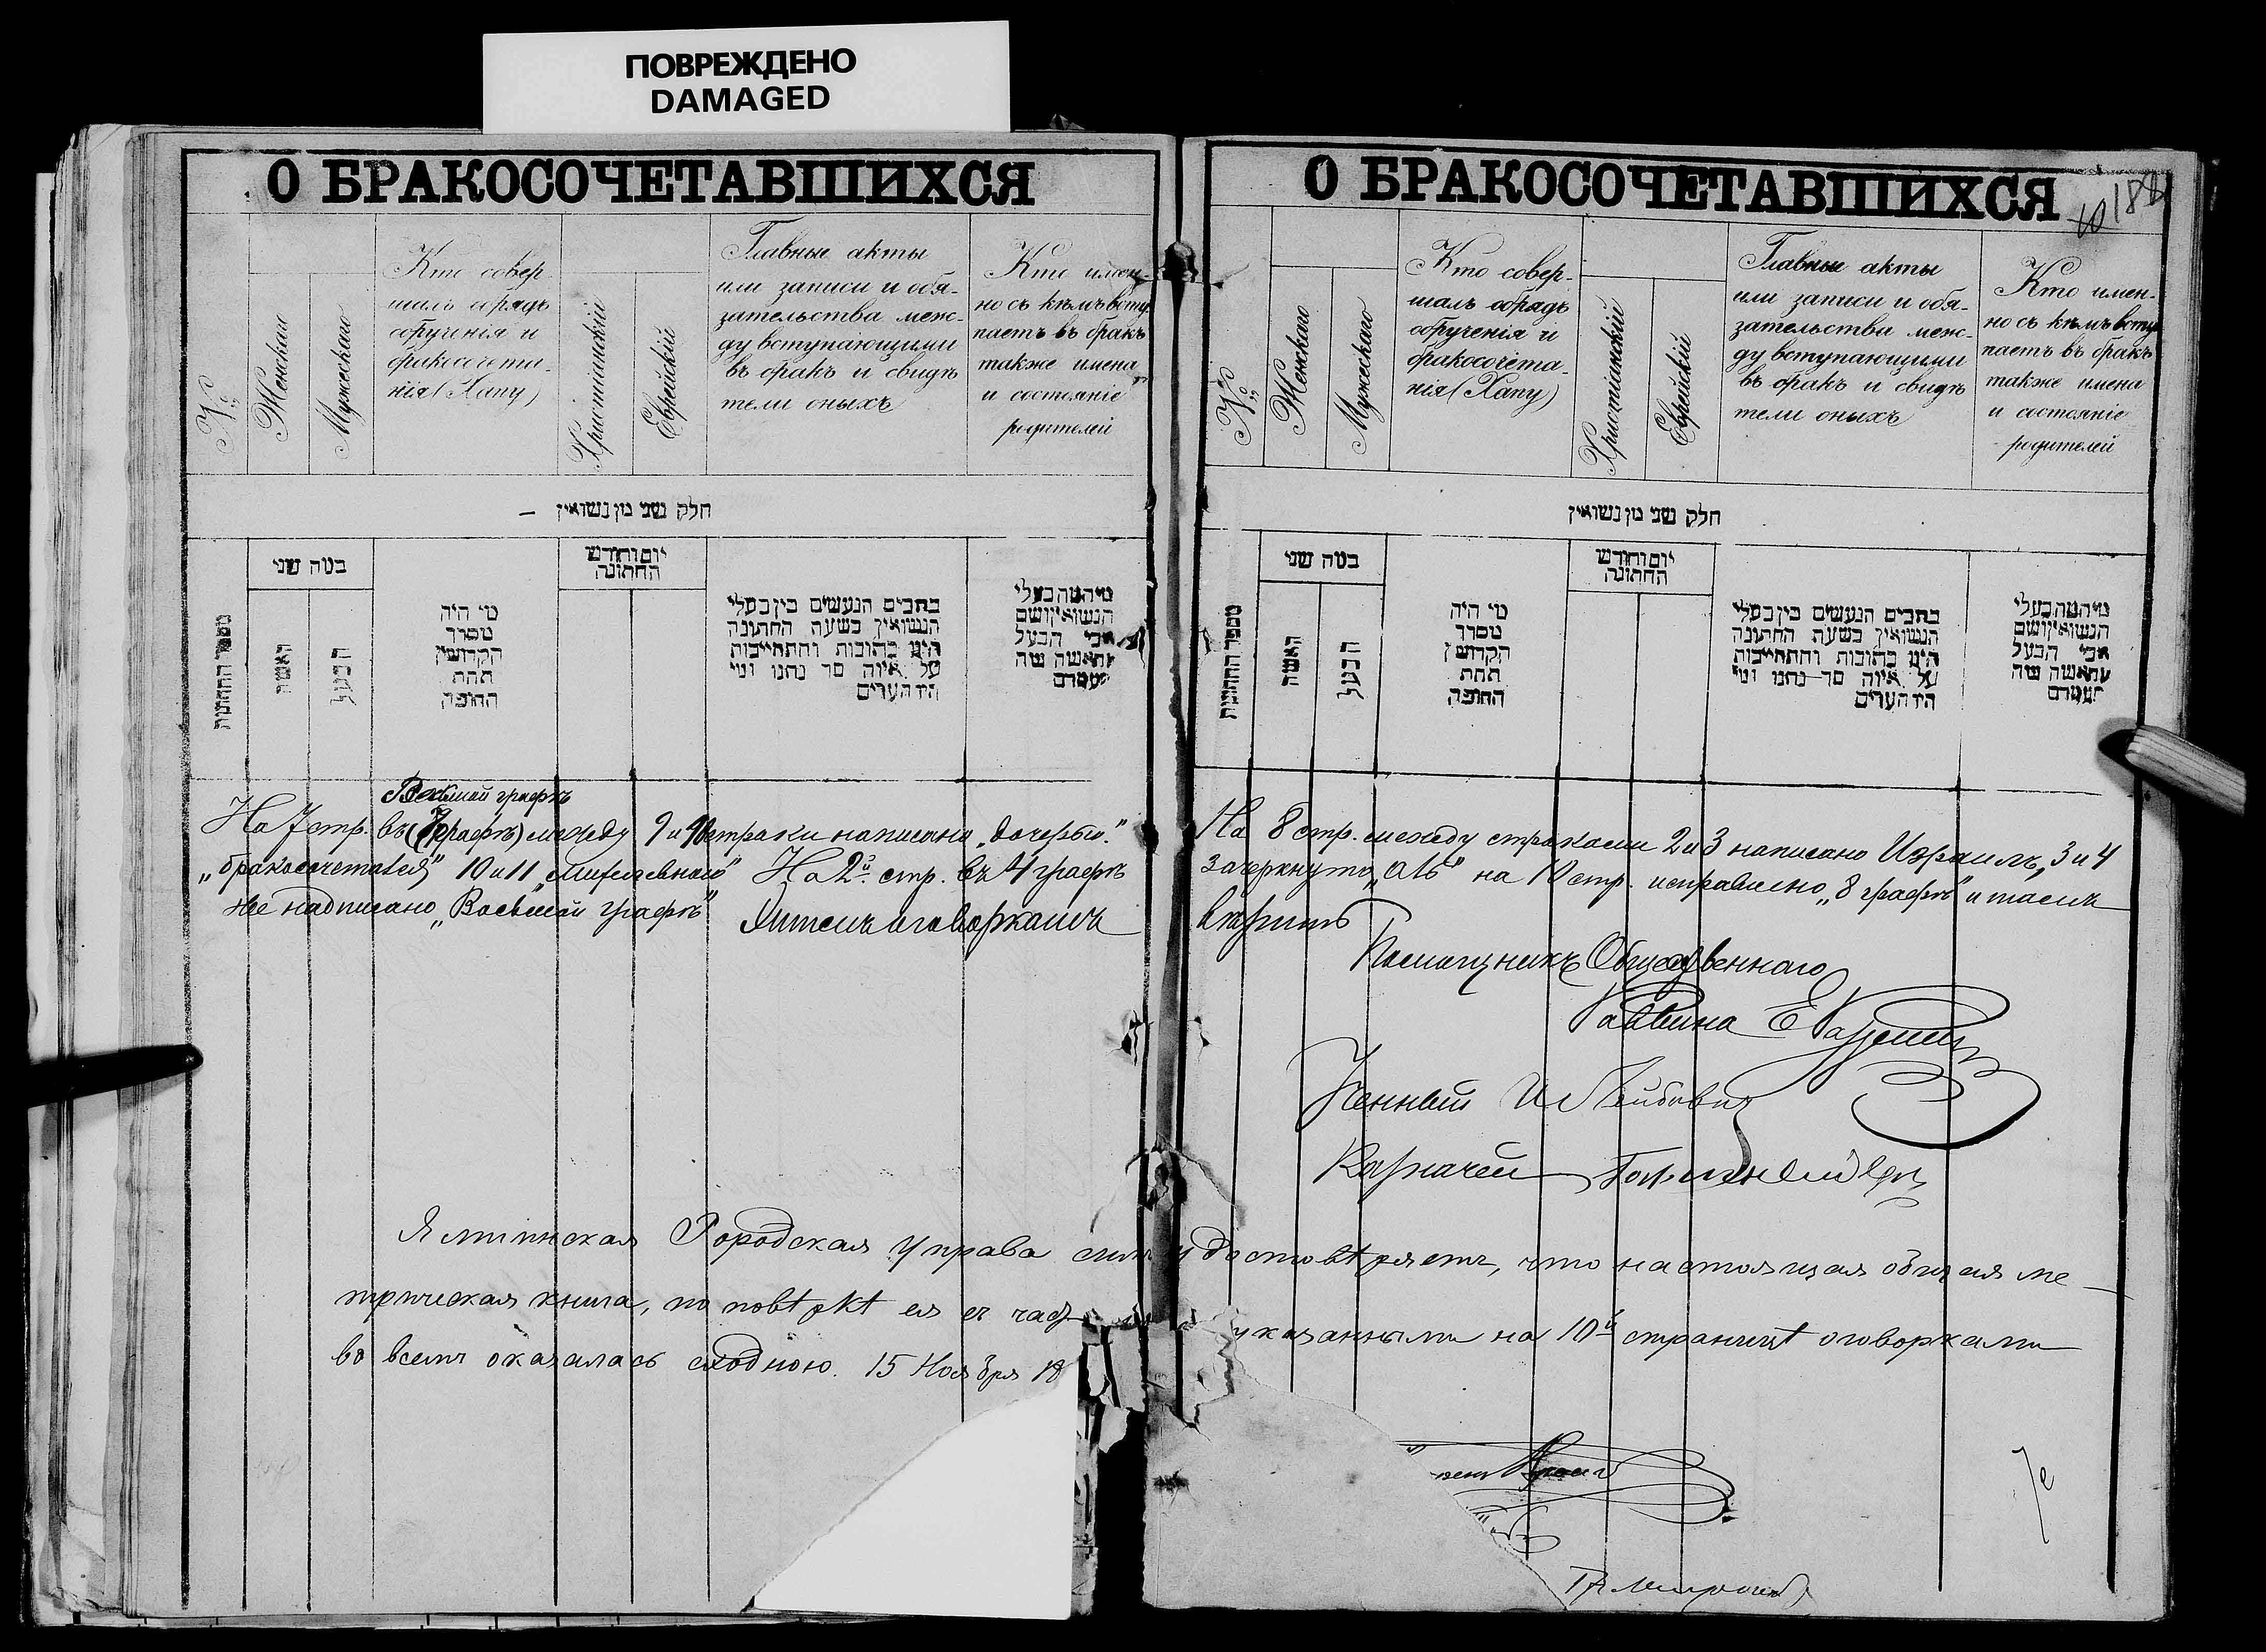 ПОВРЕЖДЕНО
DAMAGED
О БРАКОСОЧЕТАВШИХСЯ
№
Женскаго
Мужескаго
Кто совер-
шалъ обрядъ
обрученія и
бракосочета-
нія (Хапу)
Христіанскій
Еврейскій
Главные акты
или записи и обя-
зательства меж-
ду вступающими
въ бракъ и свидѣ
тели оныхъ
Кто имен-
но съ кѣмъ всту
паетъ въ бракъ
также имена
и состояніе
родителей
חלק שני מן נשואין
מספר החתונות
במה שני
האשה
הבעל
מי היה
מסדר
הקדושין
תחת
החופה
יום וחודש
החתונה
כתבים הנעשים בין בעלי
הנשואין בשעה החתונה
היינו כתובות והתחייבות
על איזה סך נתנו ומי
היו העדים
מי המה בעלי
הנשואין ושם
אבי הבעל
והאשה ומה
מעמדם
Восьмой графѣ
На 7 стр. въ (7 графѣ) между 9 и 10 строки написано „дочерью“
„бракосочетался“ 10 и 11 На 2й стр. въ 4 графѣ
не надписано „Восьмой графѣ“ оговоркамъ
О БРАКОСОЧЕТАВШИХСЯ
10
188
№
Женскаго
Мужескаго
Кто совер-
шалъ обрядъ
обрученія и
бракосочета-
нія (Хапу)
Христіанскій
Еврейскій
Главные акты
или записи и обя-
зательства меж-
ду вступающими
въ бракъ и свидѣ
тели оныхъ
Кто имен-
но съ кѣмъ всту
паетъ въ бракъ
также имена
и состояніе
родителей
חלק שני מן נשואין
מספר החתונות
במה שני
האשה
הבעל
מי היה
מסדר
הקדושין
תחת
החופה
יום וחודש
החתונה
כתבים הנעשים בין בעלי
הנשואין בשעה החתונה
היינו כתובות והתחייבות
על איזה סך נתנו ומי
היו העדים
מי המה בעלי
הנשואין ושם
אבי הבעל
והאשה ומה
מעמדם
На 8 стр. между строками 2 и 3 написано Израиль, 3 и 4
зачеркнуто на 10 стр. исправлено „8 графѣ“ и
вѣрить
Помощникъ Общественнаго
Раввина Е
Ученый И Лейбовичъ
Казначей
Ялтинская Городская Управа симъ удостовѣряетъ, что настоящая общая ме-
трическая книга, по повѣркѣ ея съ указанными на 10й страницѣ оговорками
во всемъ оказалась сходною. 15 Ноября 18